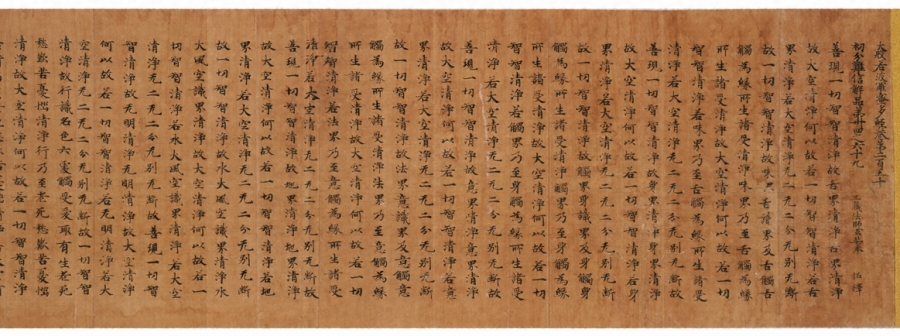 大般若波羅蜜多經卷第二百五十
初分難信解品第三十四之六十九
三藏法師玄奘奉 詔譯
善現一切智智清淨故舌界清淨舌界清淨
故大空清淨何以故若一切智智清淨若舌
界清淨若大空清淨无二无二分无別无斷
故一切智智清淨故味界舌識界及舌觸舌
觸為緣所生諸受清淨味界乃至舌觸為緣
所生諸受清淨故大空清淨何以故若一切
智智清淨若味界乃至舌觸為緣所生諸受
清淨若大空清淨无二无二分无別无斷故
善現一切智智清淨故身界清淨身界清淨
故大空清淨何以故若一切智智清淨若身
界清淨若大空清淨无二无二分无別无斷
故一切智智清淨故觸界身識界及身觸身
觸為緣所生諸受清淨觸界乃至身觸為緣
所生諸受清淨故大空清淨何以故若一切
智智清淨若觸界乃至身觸為緣所生諸受
清淨若大空清淨无二无二分无別无斷故
善現一切智智清淨故意界清淨意界清淨
故大空清淨何以故若一切智智清淨若意
界清淨若大空清淨无二无二分无別无斷
故一切智智清淨故法界意識界及意觸意
觸為緣所生諸受清淨法界乃至意觸為緣
所生諸受清淨故大空清淨何以故若一切
智智清淨若法界乃至意觸為緣所生諸受
清淨若大空清淨无二无二分无別无斷故
善現一切智智清淨故地界清淨地界清淨
故大空清淨何以故若一切智智清淨若地
界清淨若大空清淨无二无二分无別无斷
故一切智智清淨故水火風空識界清淨水
火風空識界清淨故大空清淨何以故若一
切智智清淨若水火風空識界清淨若大空
清淨无二无二分无別无斷故善現一切智
智清淨故无明清淨无明清淨故大空清淨
何以故若一切智智清淨若无明清淨若大
空清淨无二无二分无別无斷故一切智智
清淨故行識名色六處觸受愛取有生老死
愁歎苦憂惱清淨行乃至老死愁歎苦憂惱
清淨故大空清淨何以故若一切智智清淨